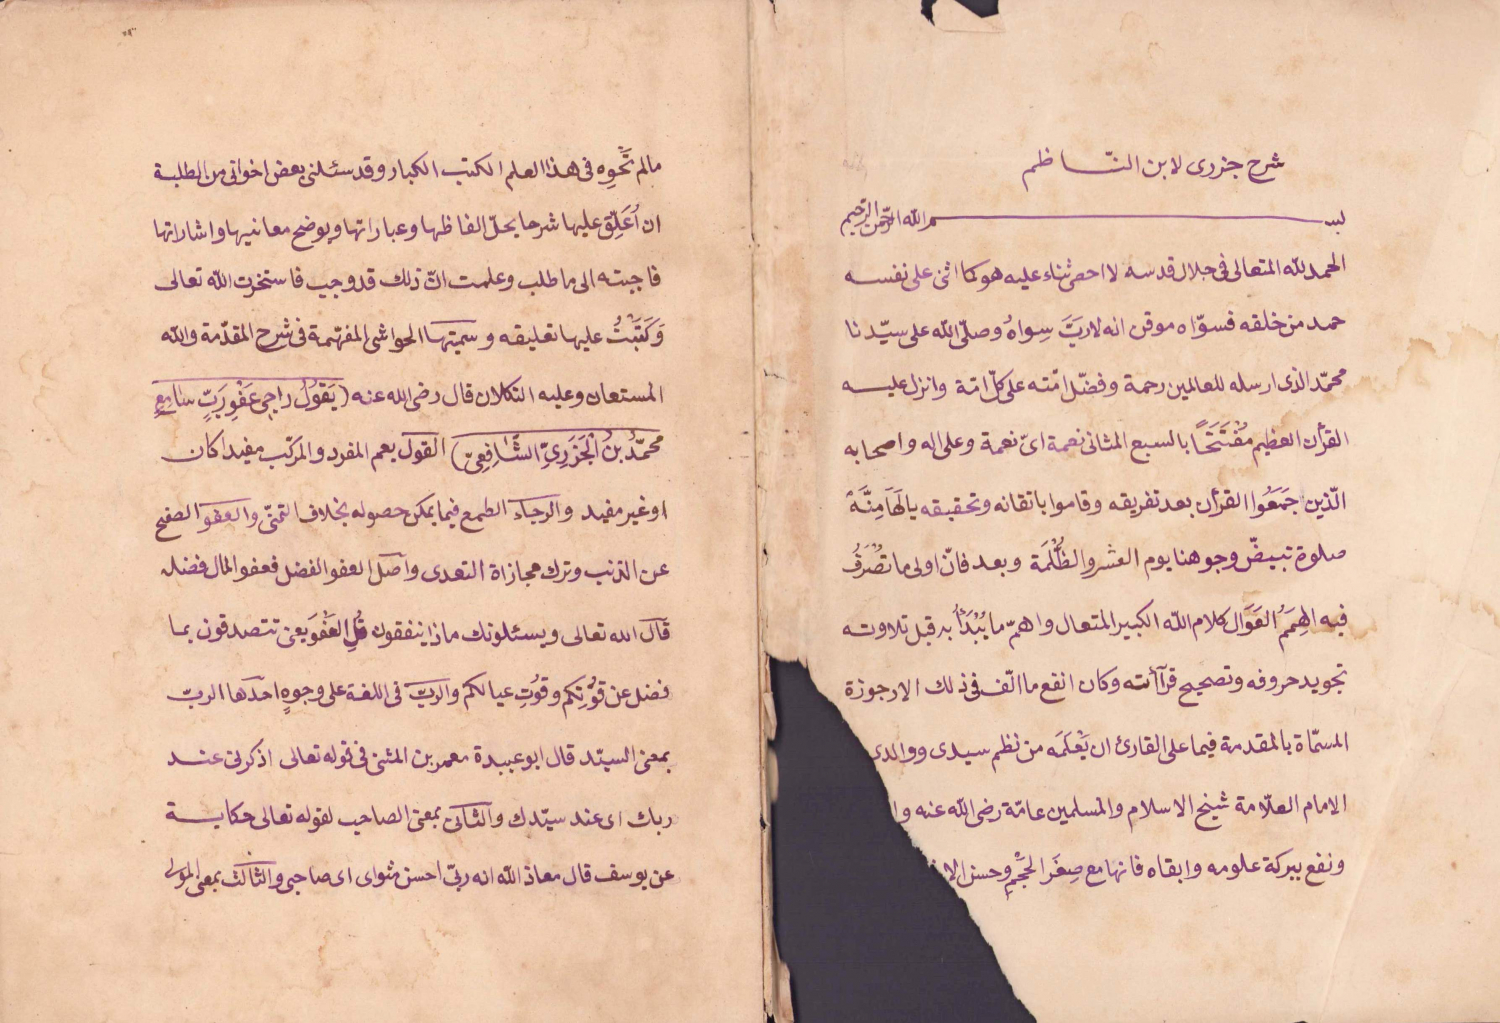 شرح جزرى لابن النّاظم
بسم الله الرّحمن الرّحيم
الحمد للّه المتعالى فى جلال قدسه لا احصى ثناء عليه هو كما اثنى على نفسه
حمد من خلقه فسوّاه موقن انه لا ربّ سِواهُ وصلّى اللّه على سيّدنا
محمّد الذى ارسله للعالمين رحمة وفضّل امّته على كلّ امّة وانزل عليه
القرأن العظيم مُفْتَتَحًا بالسبع المثانى نعمة اىّ نعمة وعلى اله واصحابه
الّذين جَمَعُوا القرأن بعد تفريقه وقاموا باتقانه وتحقيقه يالَهَا مِنَّةً
صلوة تبيضّ وجوهنا يوم العشر والظُّلْمَة وبعد فانّ اولى ما تُصْرَفُ
فيه الهِمَمُ العَوَال كلام اللّه الكبير المتعال واهمّ ما يُبْدَأُ به قبل تلاوته
تجويد حروفه وتصحيح قرآأته وكان انفع ما الّف فى ذلك الارجوزة
المسمّاة بالمقدمة فيما على القارئ ان يَعْلَمَه من نظم سيدى ووالدى
الامام العلّامة شيخ الاسلام والمسلمين عامّة رضى اللّه عنه
ونفع ببركة علومه وابقاه فانها مع صِغَر الحَجْمِ وحسن
مالم تَحْوِه فى هذا العلم الكتب الكبار وقد سئلنى بعض اخوانى من الطلبة
ان أُعَلِّق عليها شرحا يحلّ الفاظها وعباراتها ويوضح معانيها واشاراتها
فاجبته الى ما طلب وعلمت انّ ذلك قد وجب فاستخرت اللّه تعالى
وَكَتَبْتُ عليها تعليقه وسميتها الحواشى المفهّمة فى شرح المقدّمة واللّه
المستعان وعليه التكلان قال رضى الله عنه (يَقُولُ راجِى عَفْوِ رَبٍّ سامِعٍ
محمّدُ بنُ الْجَزَرِىِّ الشَّافِعِىّ) القول يعم المفرد والمركّب مفيدا كان
او غير مفيد والرجاء الطمع فيما يمكن حصوله بخلاف التمنّى والعفو الصفح
عن الذنب وترك مجازاة التعدى واصل العفو الفضل فعفو المال فضله
قال الله تعالى ويسئلونك ماذا ينفقون قُلِ العَفْوَ يعنى تتصدقون بما
فضل عن قوْتِكم وقوْتِ عيالكم والربّ فى اللغة على وجوهٍ احدها الربّ
بمعنى السيّد قال ابو عبيدة معمر بن المثنى فى قوله تعالى اذكرنى عند
ربك اى عند سيّدك والثانى بمعنى الصاحب لقوله تعالى حكاية
عن يوسف قال معاذ اللّه انه ربّى احسن مثواى اى صاحبى والثالث بمعنى المولى